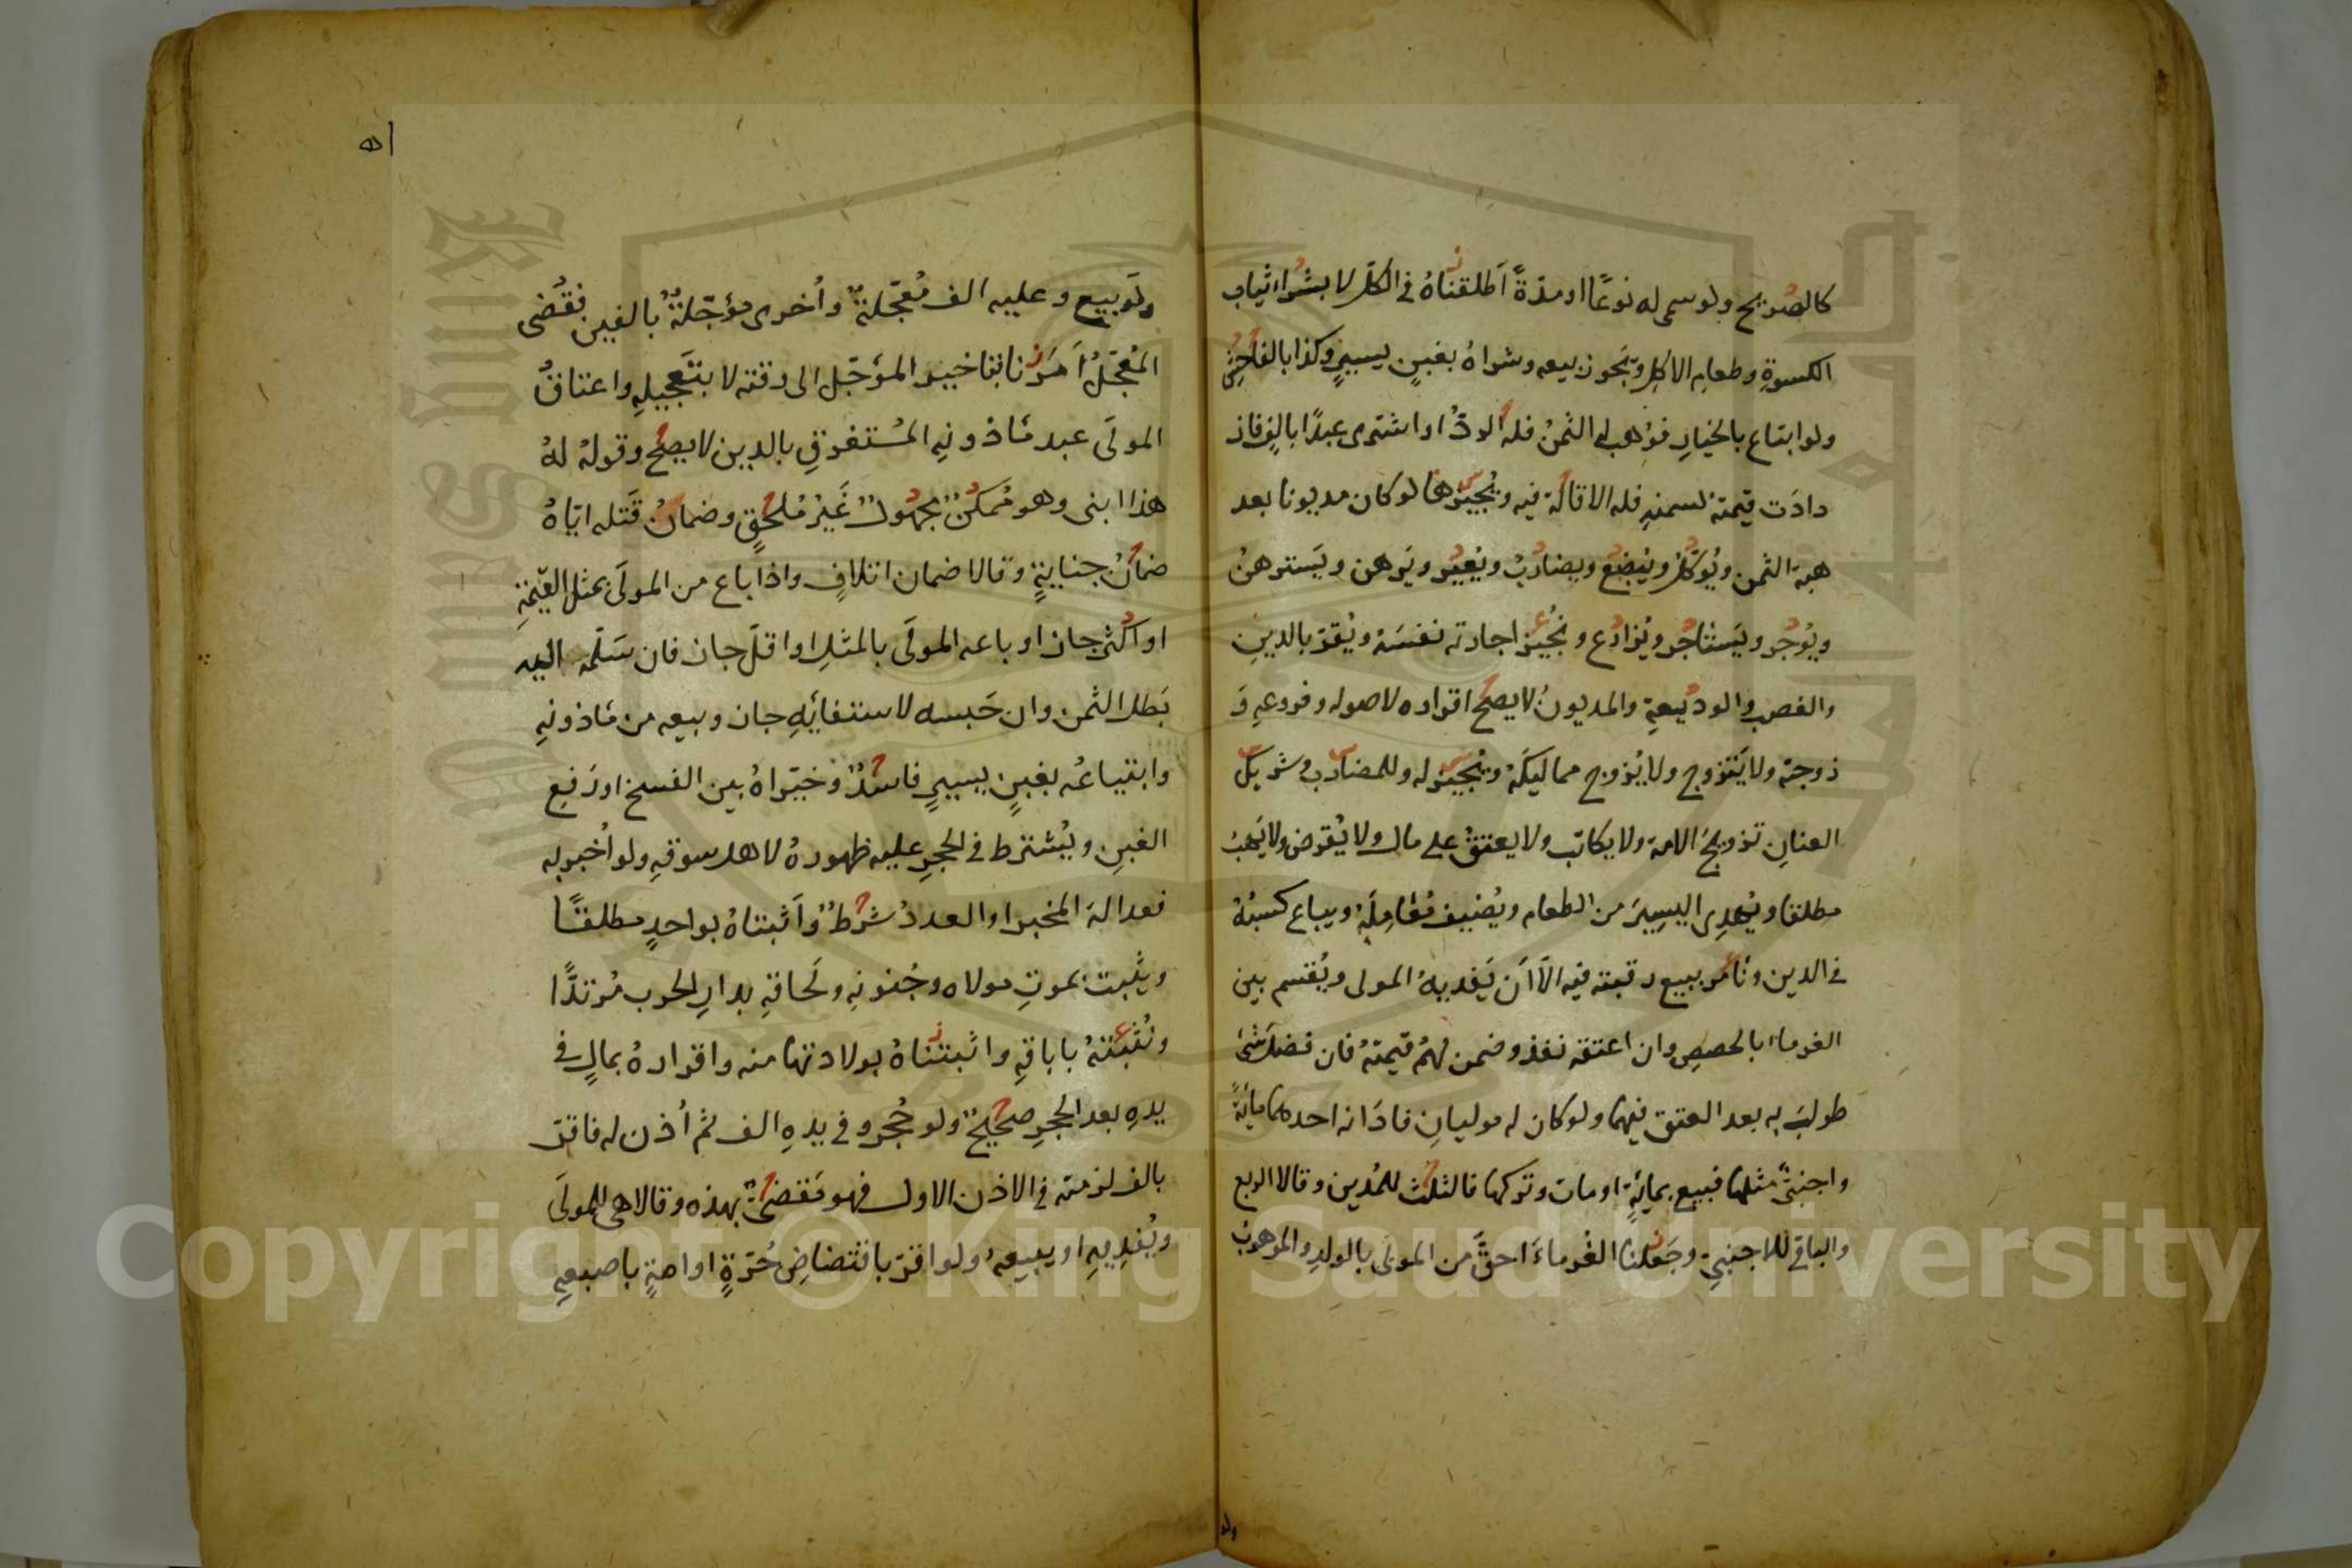 كالصريح ولو سمى له نوعًا او مدّةً اَطلقناهُ فى الكلّ لا بشراء ثياب
الكسوةِ وطعامِ الاكلِ ويَجوز بيعه وشراهُ بغبنٍ يسيرٍ وكذا بالفاحش
ولو ابتاع بالخيارِ فوُهب له الثمنُ فله الردّ او اشترى عبدًا بالفٍ فاز
دادَت قيمتهُ لسمنهِ فله الاقالة فيه ويُجيزها لو كان مديونا بعد
هبة الثمن ويُوكّل ويُبضِعُ ويضاربُ ويُعيرُ ويَرهن ويَسترهنُ
ويُوجر ويَستاجر ويُزارع ونُجيز اجارته نفسَهُ ويُقرّ بالدينِ
والغصبِ والوديعةِ والمديونُ لا يصحّ اقراره لاصوله وفروعهِ وَ
زوجته ولا يَتزوج ولا يُزوج مماليكَهُ ويُجيز له وللمضارب وشريك
العنانِ تزويجَ الامة ولا يكاتب ولا يعتقُ على مال ولا يُقرض ولا يَهبُ
مطلقا ويُهدِى اليسيرَ من الطعام ويُضيف مُعامِلَهُ ويباع كسبُهُ
فى الدين ونأمر ببيع رقبته فيه الّا اَن يَفديهُ المولى ويُقسم بين
الغرماء بالحصصِ وان اعتقه نفذ وضمن لهمُ قيمتهُ فان فضلَ شئ
طولبَ به بعد العتق فيهما ولو كان له موليانِ فادَانه احدهما مائةً
واجنبىٌ مثلها فبيع بمائةٍ او مات وتركها فالثلث للمُدين وقالا الربع
والباقى للاجنبىِ وجَعلنا الغُرماءَ احقَّ من المولَى بالولدِ والموهوبِ
ولو
٥١
ولَو بيع وعليه الف مُعجّلةٌ واُخرى مؤجّلةٌ بالفين فقُضى
المُعجّلُ اَمَرنا بتاخير المؤجّل الى وقته لا بتَعجيلهِ واعتاقُ
المولَى عبد مَاذونهِ المُستغرقِ بالدين لا يصحّ وقولهُ لهُ
هذا ابنى وهو مُمكنٌ مجهولٌ غَيرُ مُلحقٍ وضمانُ قَتله ايّاهُ
ضمانُ جنايةٍ وقالا ضمان اتلافٍ واذا باع من المولَى بمثل القيمةِ
او اكثر جاز او باعه المولَى بالمثلِ او اقلّ جاز فان سَلّمه اليه
بَطل الثمن وان حَبسه لاستيفائهِ جاز وبيعه من مَاذونهِ
وابتياعُه بغبنٍ يسيرٍ فاسدٌ وخيّراهُ بين الفسخ او رَفعِ
الغبنِ ويُشترط فى الحجرِ عليه ظهورهُ لاهل سوقهِ ولو اُخبر به
فعدالة المخبر او العددُ شرطٌ واَثبتاهُ بواحدٍ مطلقًا
ويثبت بموتِ مولاه وجُنونهِ ولَحاقهِ بدارِ الحرب مُرتدًّا
ونُثبتهُ باباقهِ واثبتناهُ بولادتها منه واقرارهُ بمالٍ فى
يدهِ بعد الحجرِ صحيحٌ ولو حُجر وفى يدهِ الف ثم اُذن له فاقرّ
بالف لزمته فى الاذن الاول فهو مَقضىٌّ بهذه وقالا هى للمولَى
ويُفديهِ او يبيعهُ ولو اقرّ بافتضاضِ حُرّةٍ او امةٍ باصبعهِ
Copyright © King Saud University